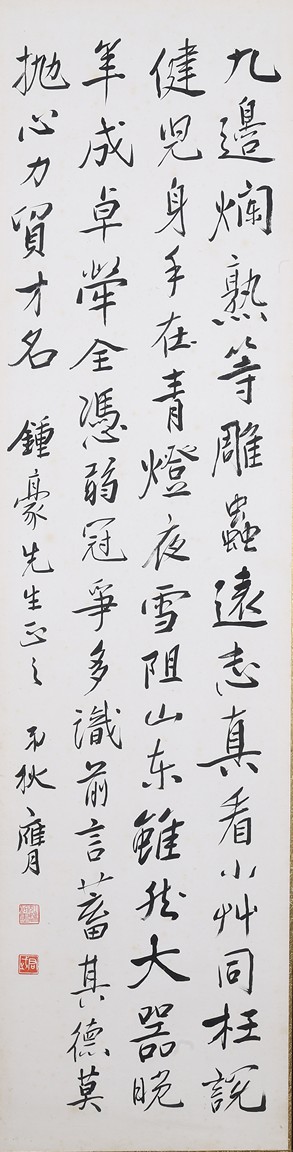 九邊爛熟等雕蟲遠志真看小艸同枉說
健兒身手在青燈夜雪阻山東雖然大器晚
年成卓犖全憑弱冠爭多識前言蓄其德莫
拋心力貿才名 鍾豪先生正之 弟狄膺